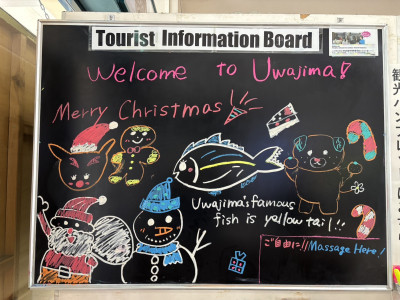 Tourist Information Board
Welcome to Uwajima!
Merry Christmas!
Uwajima's famous
fish is yellow tail!!
ご自由に!! Massage Here!